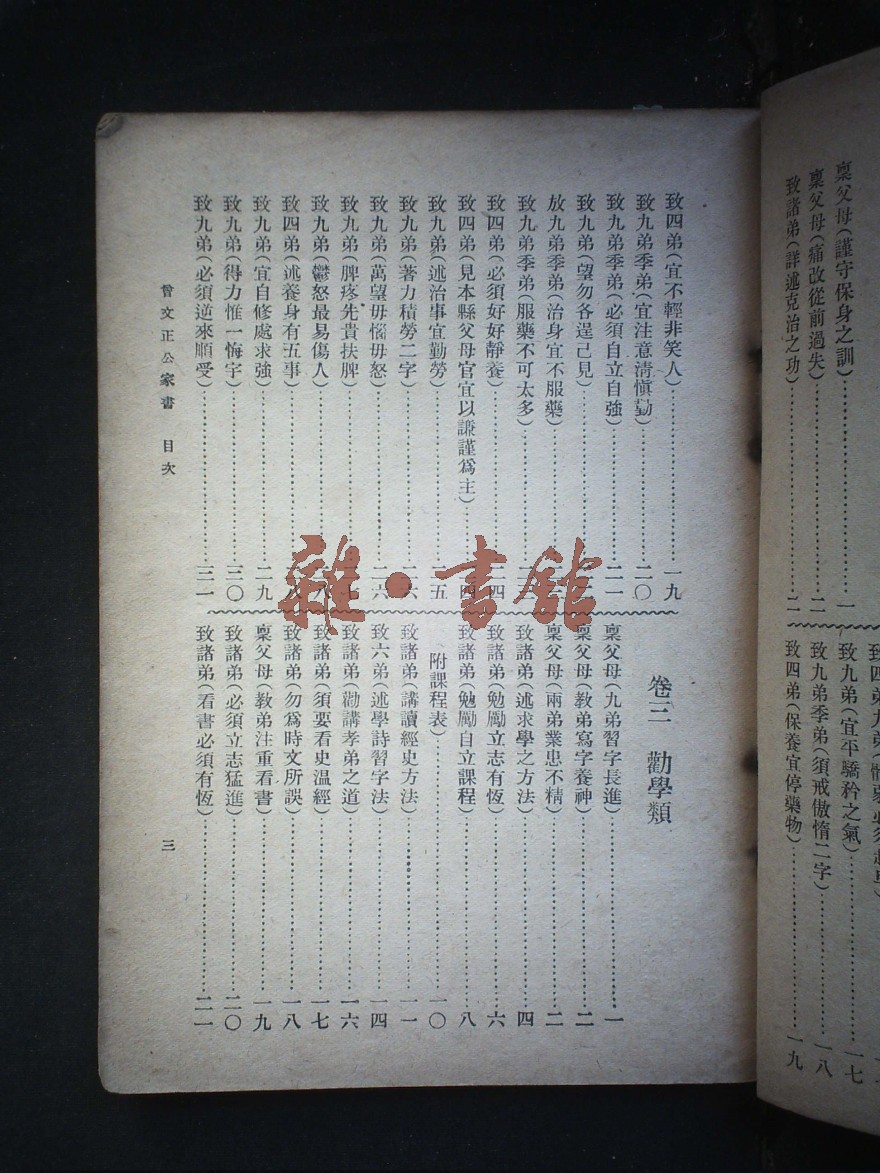 稟父母(謹守保身之訓)……一
稟父母(痛改從前過失)……二
致諸弟(詳述克治之功)……二
致九弟(宜平驕矜之氣)……一七
致九弟季弟(須戒傲惰二字)……一八
致四弟(保養宜停藥物)……一九
致四弟(宜不輕非笑人)……一九
致九弟季弟(宜注意清慎勤)……二〇
致九弟季弟(必須自立自強)……二一
致九弟(望勿各逞己見)……二
放九弟季弟(治身宜不服藥)……二
致九弟季弟(服藥不可太多)……二
致四弟(必須好好靜養)……四
致四弟(見本縣父母官宜以謙謹爲主)……四
致九弟(述治事宜勤勞)……二五
致九弟(著力積勞二字)……二六
致九弟(萬望毋惱毋怒)……二六
致九弟(脾疼先貴扶脾)……七
致九弟(鬱怒最易傷人)……八
致四弟(述養身有五事)……八
致九弟(宜自修處求強)……二九
致九弟(得力惟一悔字)……三〇
致九弟(必須逆來順受)……三一
卷三 勸學類
稟父母(九弟習字長進)……一
稟父母(教弟寫字養神)……二
稟父母(兩弟業患不精)……二
致諸弟(述求學之方法)……四
致諸弟(勉勵立志有恆)……六
致諸弟(勉勵自立課程)……八
附課程表)……一〇
致諸弟(講讀經史方法)……一一
致六弟(述學詩習字法)……一四
致諸弟(勸講孝弟之道)……一六
致諸弟(須要看史溫經)……一七
致諸弟(勿爲時文所誤)……一八
稟父母(教弟注重看書)……一九
致諸弟(必須立志猛進)……二〇
致諸弟(看書必須有恆)……二一
曾文正公家書 目次
三
雜·書館